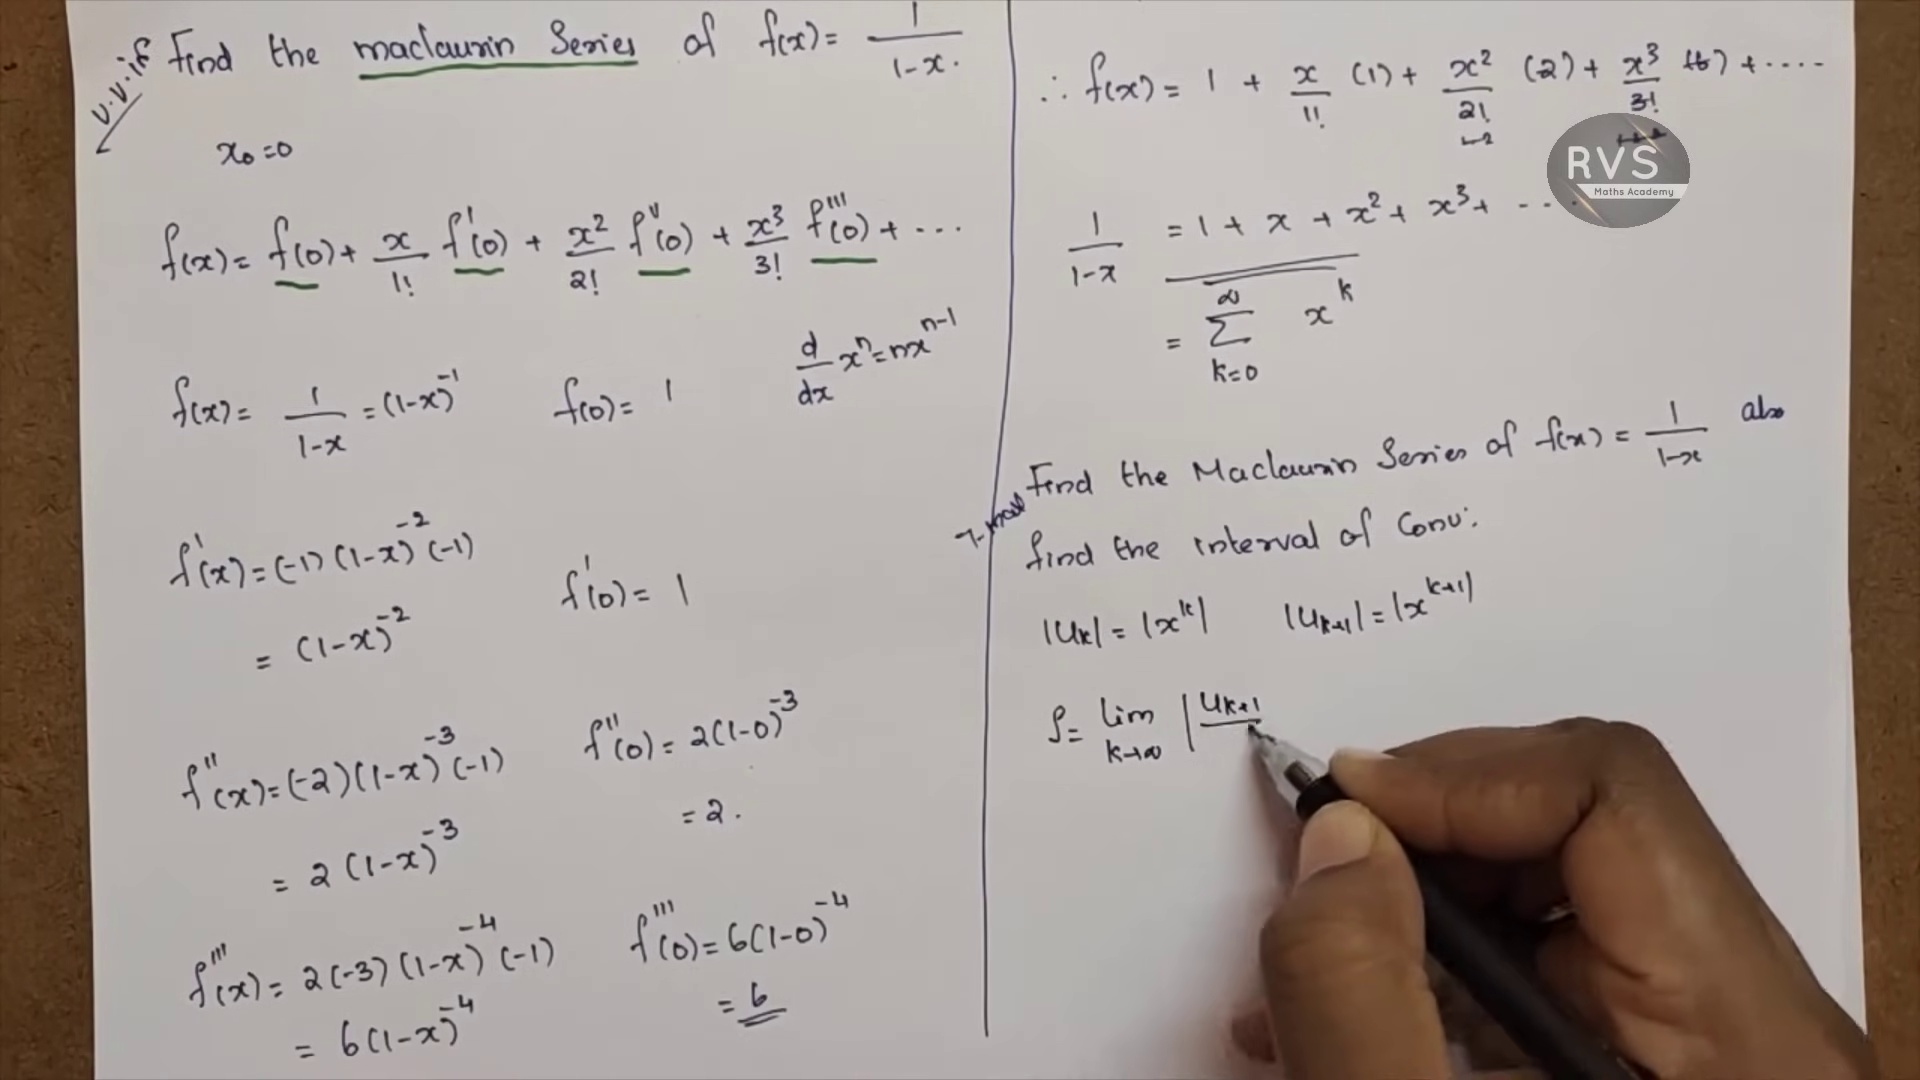 v.v.if Find the maclaurin Series of f(x) = 1/(1-x).
x₀ = 0
f(x) = f(0) + x/1! f'(0) + x²/2! f''(0) + x³/3! f'''(0) + ...
f(x) = 1/(1-x) = (1-x)⁻¹ f(0) = 1 d/dx xⁿ = nxⁿ⁻¹
f'(x) = (-1)(1-x)⁻²(-1)
= (1-x)⁻² f'(0) = 1
f''(x) = (-2)(1-x)⁻³(-1) f''(0) = 2(1-0)⁻³
= 2(1-x)⁻³ = 2.
f'''(x) = 2(-3)(1-x)⁻⁴(-1) f'''(0) = 6(1-0)⁻⁴
= 6(1-x)⁻⁴ = 6
∴ f(x) = 1 + x/1! (1) + x²/2! (2) + x³/3! (6) + ....
1-2
RVS
Maths Academy
1/(1-x) = 1 + x + x² + x³ + ...
= ∑_{k=0}^{∞} x^k
Find the Maclaurin Series of f(x) = 1/(1-x) also
find the interval of Conv:
|u_k| = |x^k| |u_{k+1}| = |x^{k+1}|
ρ = lim_{k→∞} |u_{k+1}